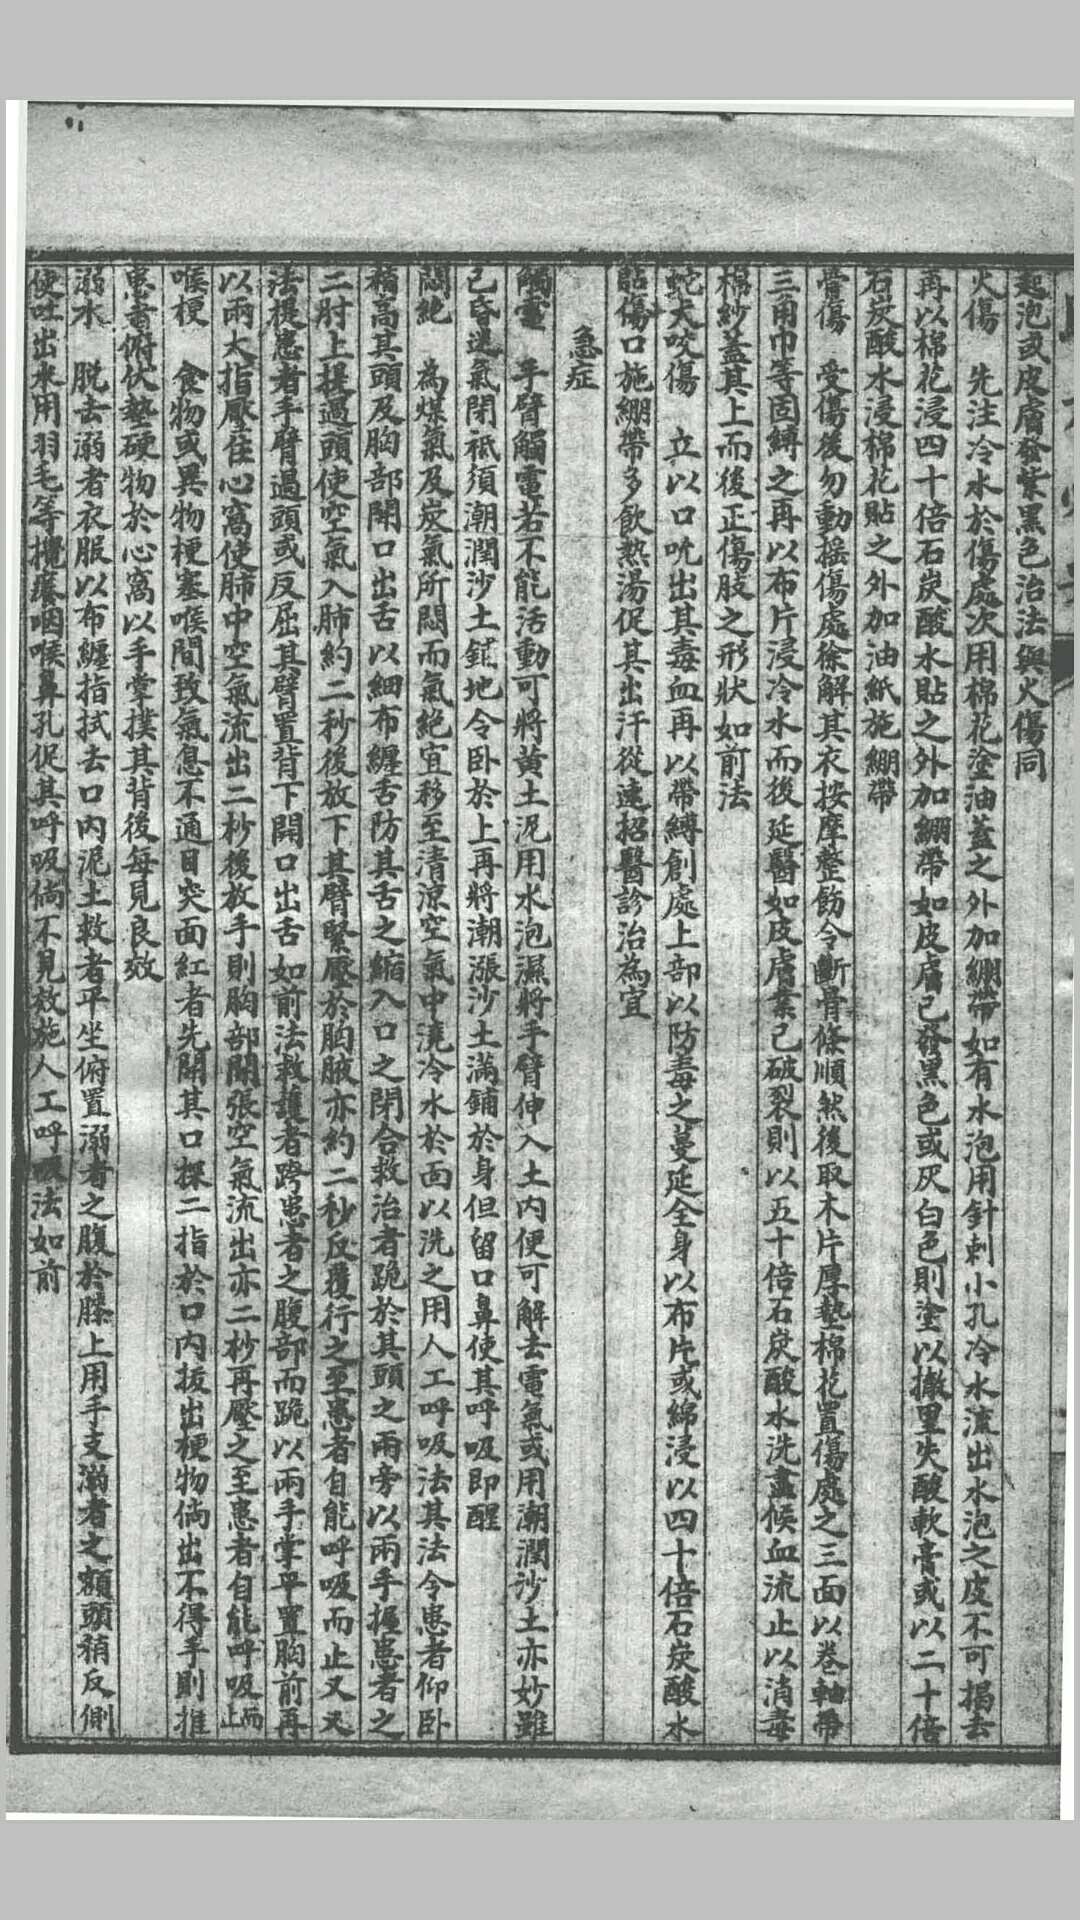 起泡或皮膚發紫黑色治法與火傷同
火傷　先注冷水於傷處次用棉花塗油蓋之外加繃帶如有水泡用針刺小孔冷水流出水泡之皮不可揭去
再以棉花浸四十倍石炭酸水貼之外加繃帶如皮膚已發黑色或灰白色則塗以撒里失酸軟膏或以二十倍
石炭酸水浸棉花貼之外加油紙施繃帶
骨傷　受傷後勿動摇傷處徐解其衣按摩整飭令斷骨條順然後取木片厚墊棉花置傷處之三面以卷軸帶
三角巾等固縛之再以布片浸冷水而後延醫如皮膚業已破裂則以五十倍石炭酸水洗盡候血流止以消毒
棉紗蓋其上而後正傷肢之形狀如前法
蛇犬咬傷　立以口吮出其毒血再以帶縛創處上部以防毒之蔓延全身以布片或綿浸以四十倍石炭酸水
貼傷口施繃帶多飲熱湯促其出汗從速招醫診治為宜
急症
觸電　手臂觸電若不能活動可將黄土泥用水泡濕將手臂伸入土内便可解去電氣或用潮潤沙土亦妙雖
已昏迷氣閉祗須潮潤沙土鋪地令卧於上再將潮漲沙土滿鋪於身但留口鼻使其呼吸即醒
悶絶　為煤氣及炭氣所悶而氣絶宜移至清涼空氣中澆冷水於面以洗之用人工呼吸法其法令患者仰卧
稍高其頭及胸部開口出舌以細布纏舌防其舌之縮入口之閉合救治者跪於其頭之兩旁以兩手握患者之
二肘上提過頭使空氣入肺約二秒後放下其臂緊壓於胸腋亦約二秒反覆行之至患者自能呼吸而止又
法提患者手臂過頭或反屈其臂置背下開口出舌如前法救護者跨患者之腹部而跪以兩手掌平置胸前再
以兩大指壓住心窩使肺中空氣流出二秒後放手則胸部開張空氣流出亦二秒再壓之至患者自能呼吸而止
喉梗　食物或異物梗塞喉間致氣息不通目突面紅者先開其口探二指於口内拔出梗物倘出不得手則推
患者俯伏墊硬物於心窩以手掌撲其背後每見良效
溺水　脱去溺者衣服以布纏指拭去口内泥土救者平坐俯置溺者之腹於膝上用手支溺者之額頭稍反側
使吐出水用羽毛等攪癢咽喉鼻孔促其呼吸倘不見效施人工呼吸法如前